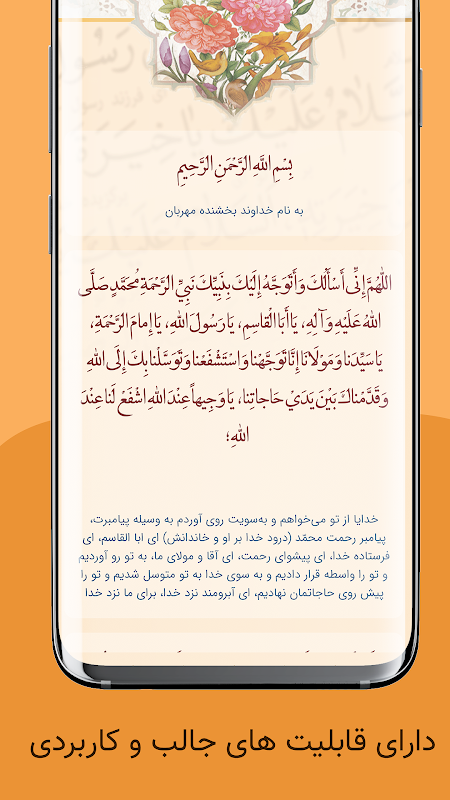 بِسْمِ اللَّهِ الرَّحْمَنِ الرَّحِيمِ
به نام خداوند بخشنده مهربان
اللّٰهُمَّ إِنِّى أَسْأَلُكَ وَأَتَوَجَّهُ إِلَيْكَ بِنَبِيِّكَ نَبِيِّ الرَّحْمَةِ مُحَمَّدٍ صَلَّى
اللهُ عَلَيْهِ وَآلِهِ، يَا أَبَا الْقَاسِمِ، يَا رَسُولَ اللهِ، يَا إِمامَ الرَّحْمَةِ،
يَا سَيِّدَنا وَمَوْلَانَا إِنَّا تَوَجَّهْنا وَاسْتَشْفَعْنا وَتَوَسَّلْنا بِكَ إِلَى اللهِ
وَقَدَّمْناكَ بَيْنَ يَدَيْ حَاجاتِنا، يَا وَجِيهاً عِنْدَ اللهِ اشْفَعْ لَنا عِنْدَ
اللهِ؛
خدایا از تو می‌خواهم و به‌سویت روی آوردم به وسیله پیامبرت،
پیامبر رحمت محمّد (درود خدا بر او و خاندانش) ای ابا القاسم، ای
فرستاده خدا، ای پیشوای رحمت، ای آقا و مولای ما، به تو رو آوردیم
و تو را واسطه قرار دادیم و به سوی خدا به تو متوسل شدیم و تو را
پیش روی حاجاتمان نهادیم، ای آبرومند نزد خدا، برای ما نزد خدا
دارای قابلیت های جالب و کاربردی